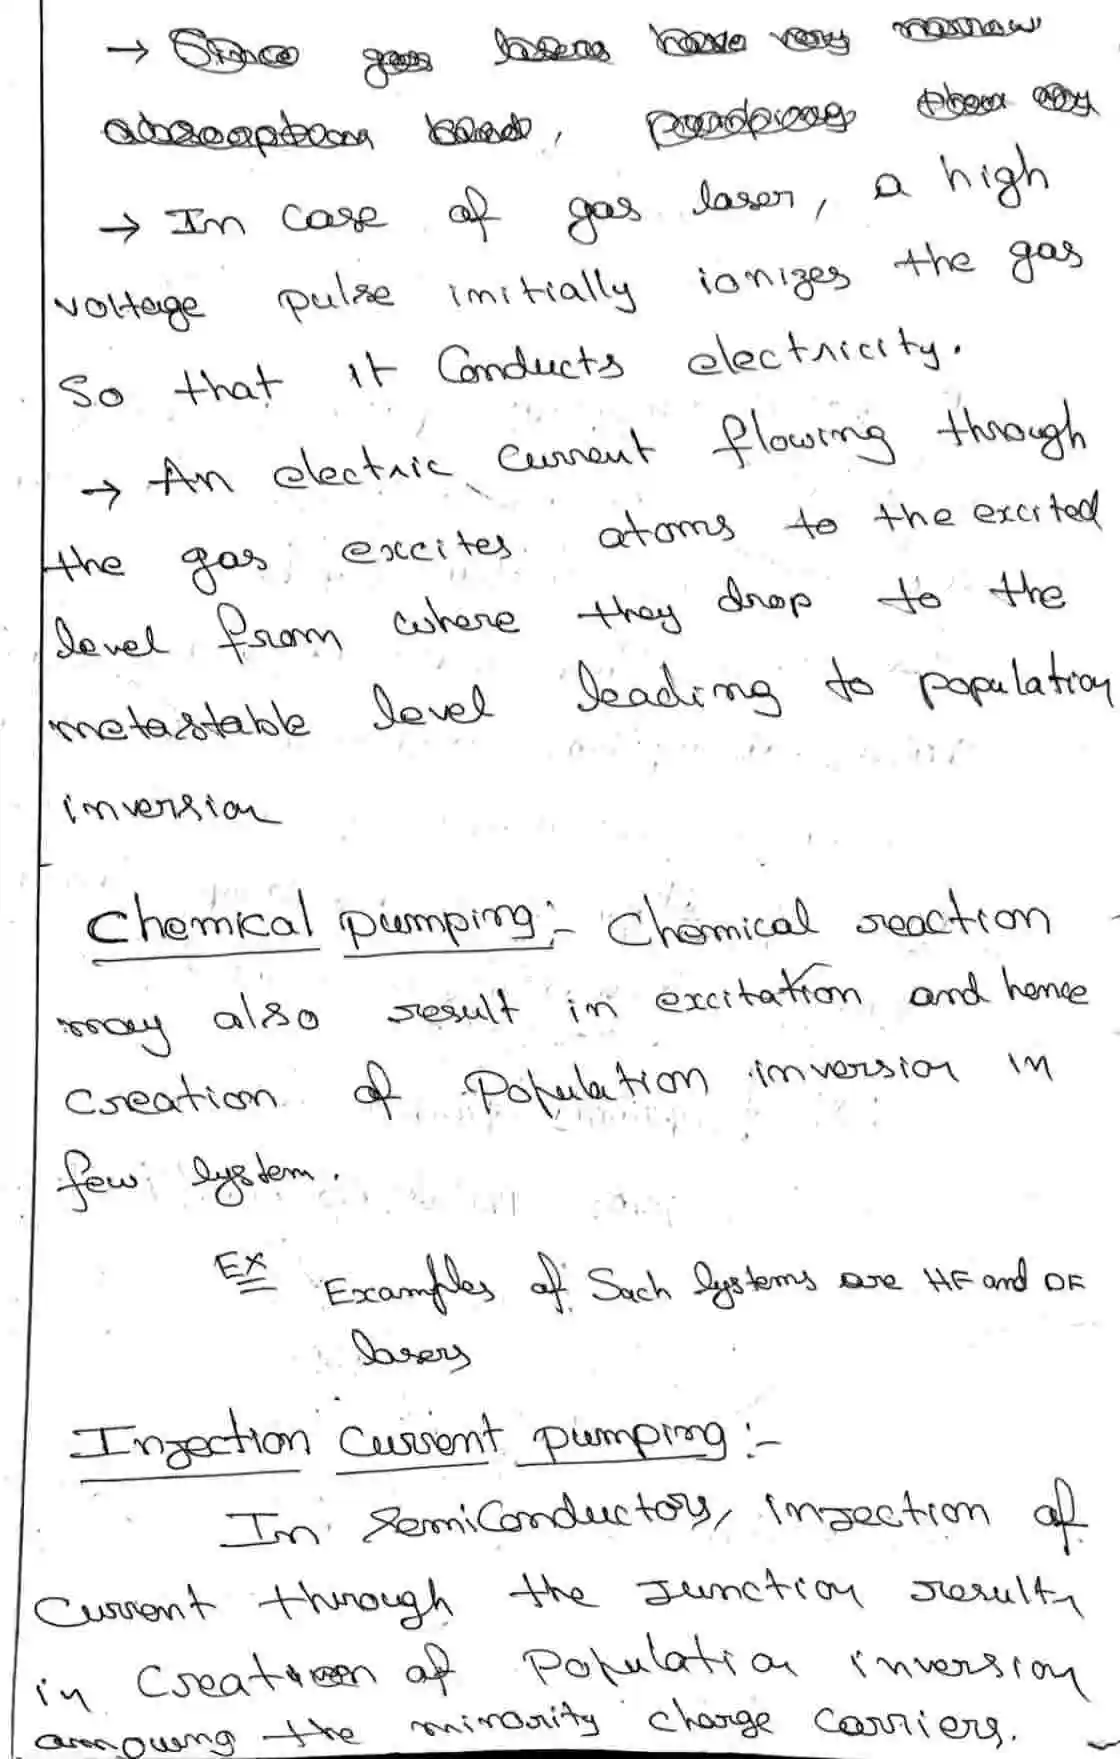 → Since gas lasers have very narrow
absorption band, pumping them by
→ In case of gas laser, a high
voltage pulse initially ionizes the gas
So that it Conducts electricity.
→ An electric current flowing through
the gas excites atoms to the excited
level from where they drop to the
metastable level leading to population
inversion
Chemical pumping:- Chemical reaction
may also result in excitation and hence
creation of Population inversion in
few system.
Ex Examples of Such systems are HF and DF
lasers
Injection Current pumping:-
In SemiConductors, injection of
Current through the junction results
in Creation of Population inversion
amoung the minority charge carriers.